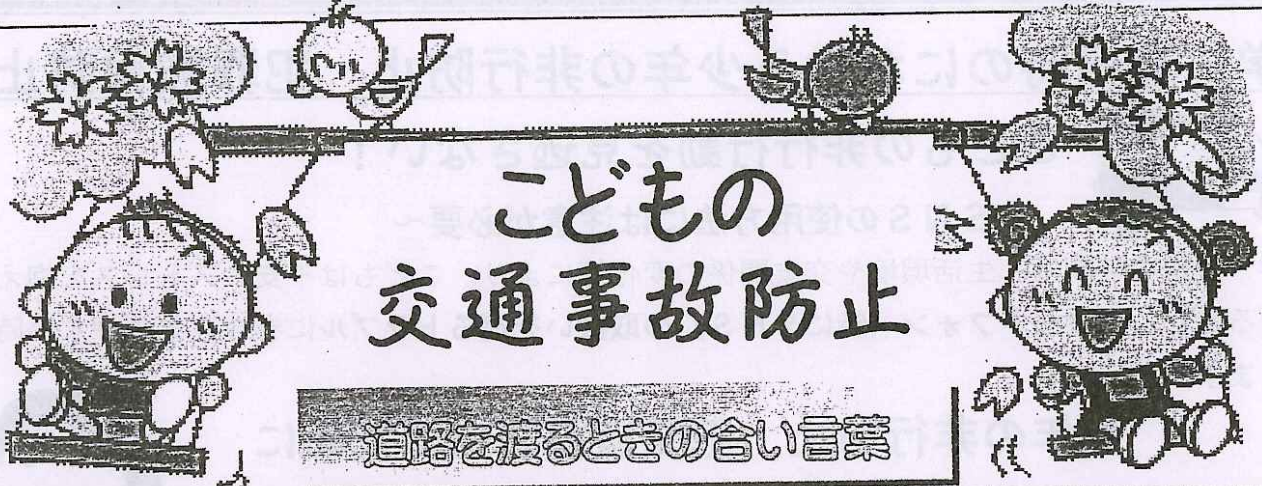 こどもの
交通事故防止
道路を渡るときの合い言葉